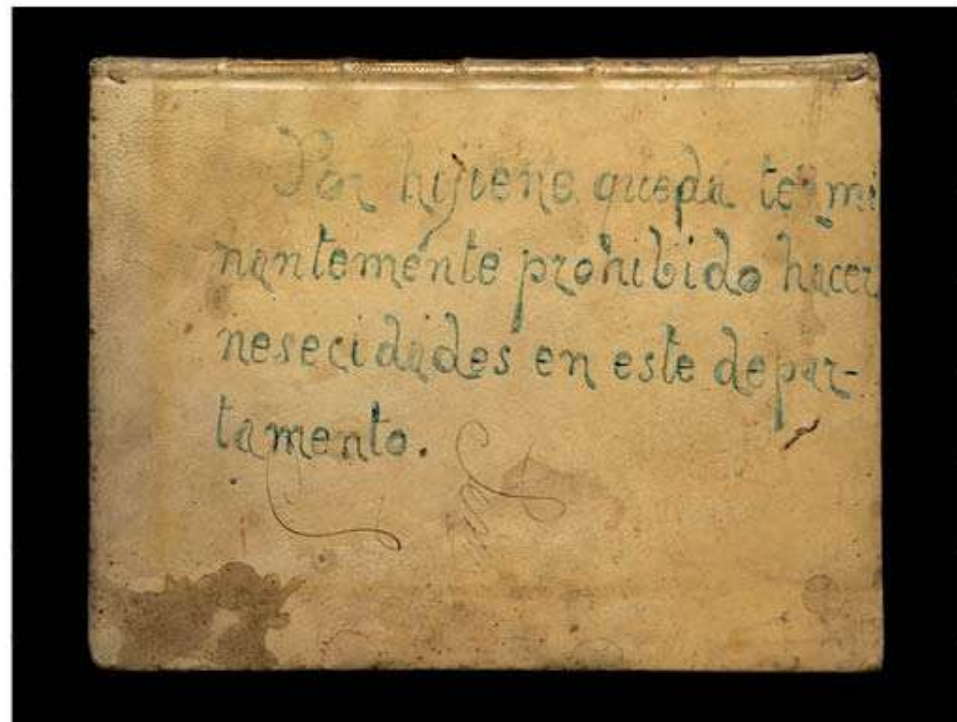 Por hijiene queda termi
nantemente prohibido hacer
nesecidades en este depar-
tamento.